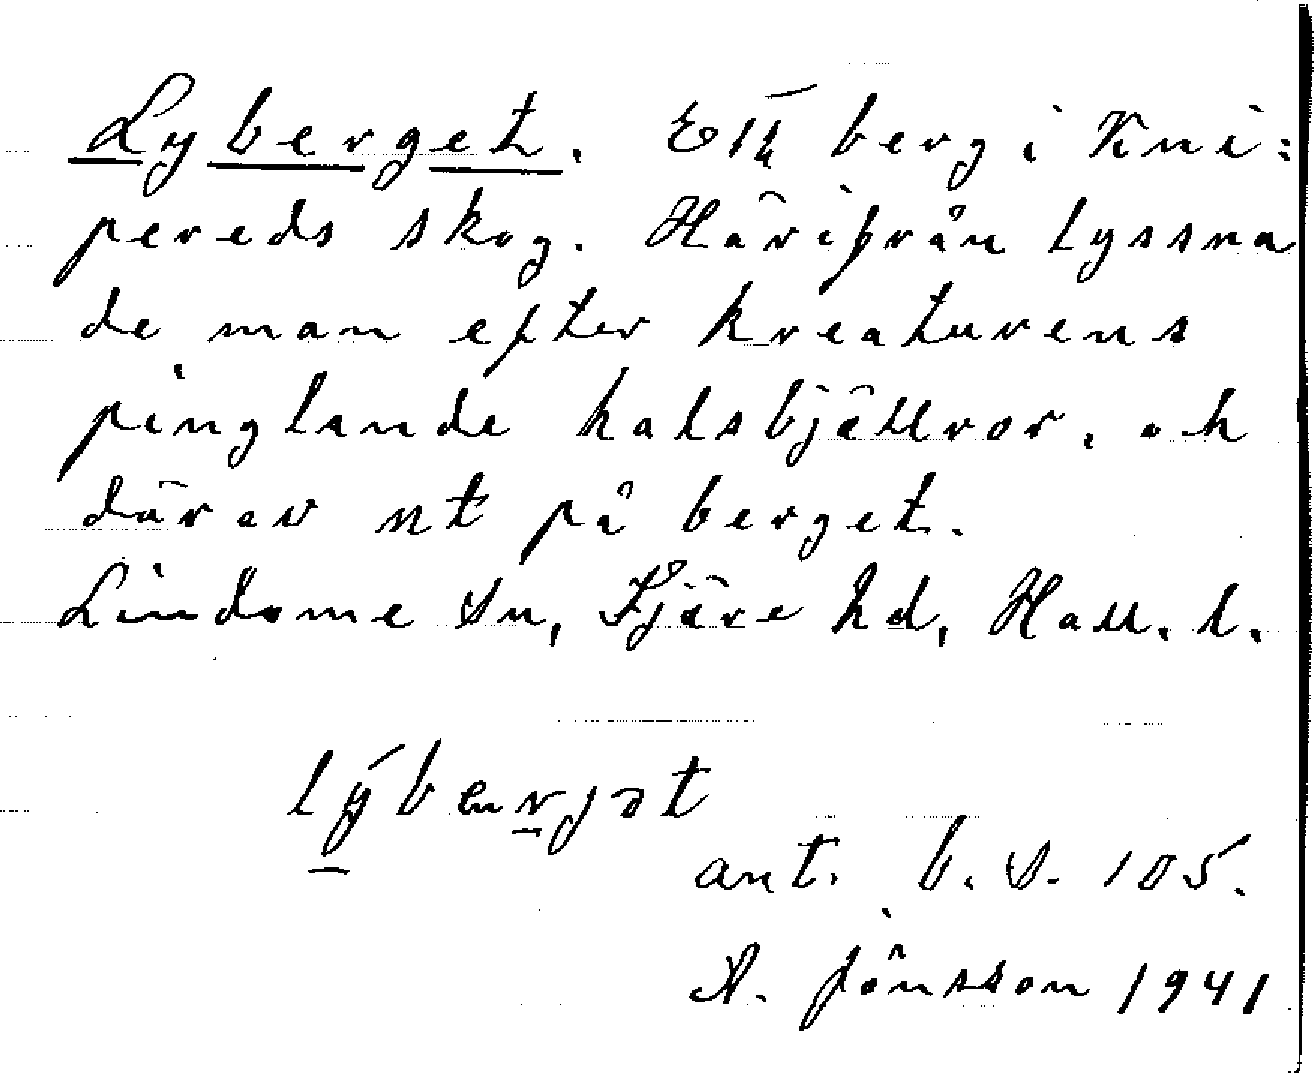 Lyberget. Ett berg i Kni-
pereds skog. Härifrån lyssna
de man efter kreaturens
pinglande halsbjällror, och
därav nt på berget.
Lindome sn, Fjäre hd, Hall. l.
ant. b. s. 105.
A. Jönsson 1941